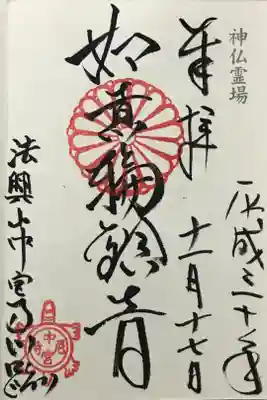 神仏霊場
平成三十年
奉拝
十一月十七日
如意輪観音
法興山中宮寺門跡
中宮寺印